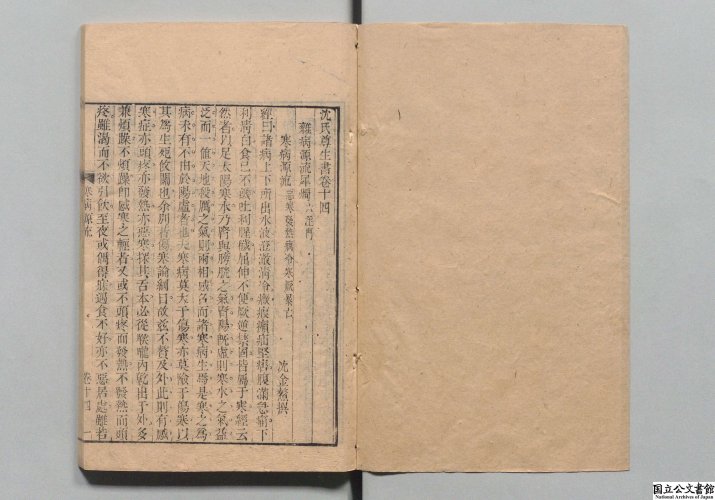 沈氏尊生書卷十四
雜病源流犀燭 六淫門
沈金鰲撰
寒病源流 惡寒發熱病 冷 寒厥暴亡
經曰諸病上下所出水液澄澈清冷癥瘕㿗疝堅痞腹滿急痛下
利清白食已不飢吐利腥穢屈伸不便厥逆禁固皆屬于寒經云
然者以足太陽寒水乃腎與膀胱之氣腎陽既虛則寒水之氣益
泛而一值天地殺厲之氣則兩相感召而諸寒病生焉是寒之為
病未有不由於陽虛者也夫寒病莫大于傷寒亦莫險于傷寒以
其為生死攸關也余別著傷寒論綱目故茲不贅及外此則有感
寒症亦頭疼亦發熱亦惡寒探其舌本必從喉嚨內乾出于外多
兼煩躁不煩躁即感寒之輕者又或不頭疼而發熱不發熱而頭
疼雖渴而不欲引飲至夜或偶得寐遇食不好亦不惡居處雖若
寒病源流
卷十四
一
国立公文書館
National Archives of Japan